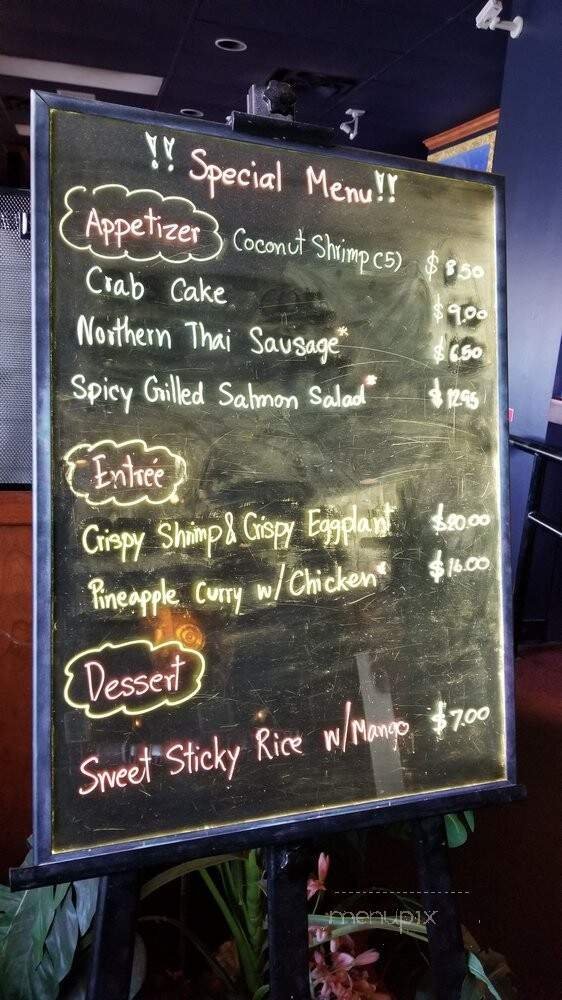 !! Special Menu !!
Appetizer Coconut Shrimp (5) $8.50
Crab Cake $9.00
Northern Thai Sausage* $6.50
Spicy Grilled Salmon Salad* $12.95
Entrée
Crispy Shrimp & Crispy Eggplant* $20.00
Pineapple Curry w/ Chicken* $16.00
Dessert
Sweet Sticky Rice w/ Mango $7.00
menupix